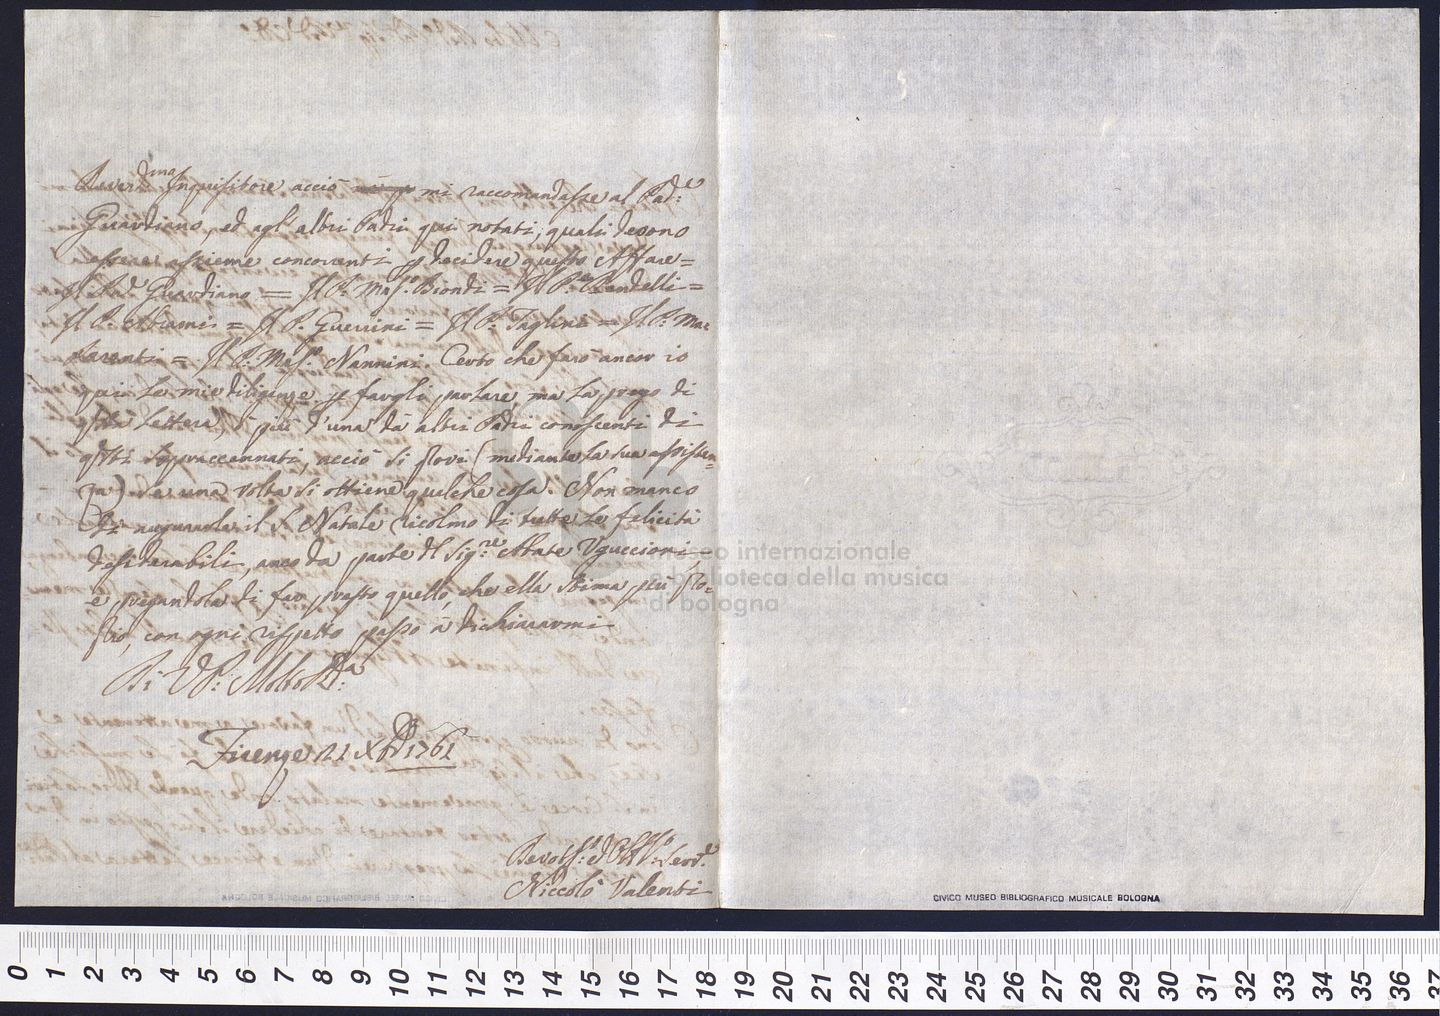 Rever.dma Inquisitore acciò mi raccomandasse al Pad.e
Guardiano, ed agl'altri Padri qui notati, quali devono
essere assieme concorrenti p decidere questo Affare=
Il Pad. Guardiano = Il P. Mas.o Biondi = Il P. Rendelli=
Il P. Abrami = Il P. Guerrini = Il P. Taglini = Il P. Ma-
= Il P. Mas.o Nannini. Certo che farò ancor io
qui le mie diligenze p fargli parlare, ma la prego di
lettera, ò più d'una da altri Padri conoscenti di
q.sti sopraccennati, acciò si provi (mediante la sua assisten-
za) se una volta si ottiene qualche cosa. Non manco
di augurarle il S. Natale ricolmo di tutte le felicità
desiderabili, anco da parte del Sig.re Abate Uguccioni,
e pregandola di far presto quello, che ella stima più pro-
prio, con ogni rispetto passo à dichiararmi
Di V. P. Molto R.da
Firenze 21 Xbre 1761
Devotis.o ed Obb.mo Serv.e
Niccolò Valenti
museo internazionale
e biblioteca della musica
di bologna
CIVICO MUSEO BIBLIOGRAFICO MUSICALE BOLOGNA
0 1 2 3 4 5 6 7 8 9 10 11 12 13 14 15 16 17 18 19 20 21 22 23 24 25 26 27 28 29 30 31 32 33 34 35 36 37